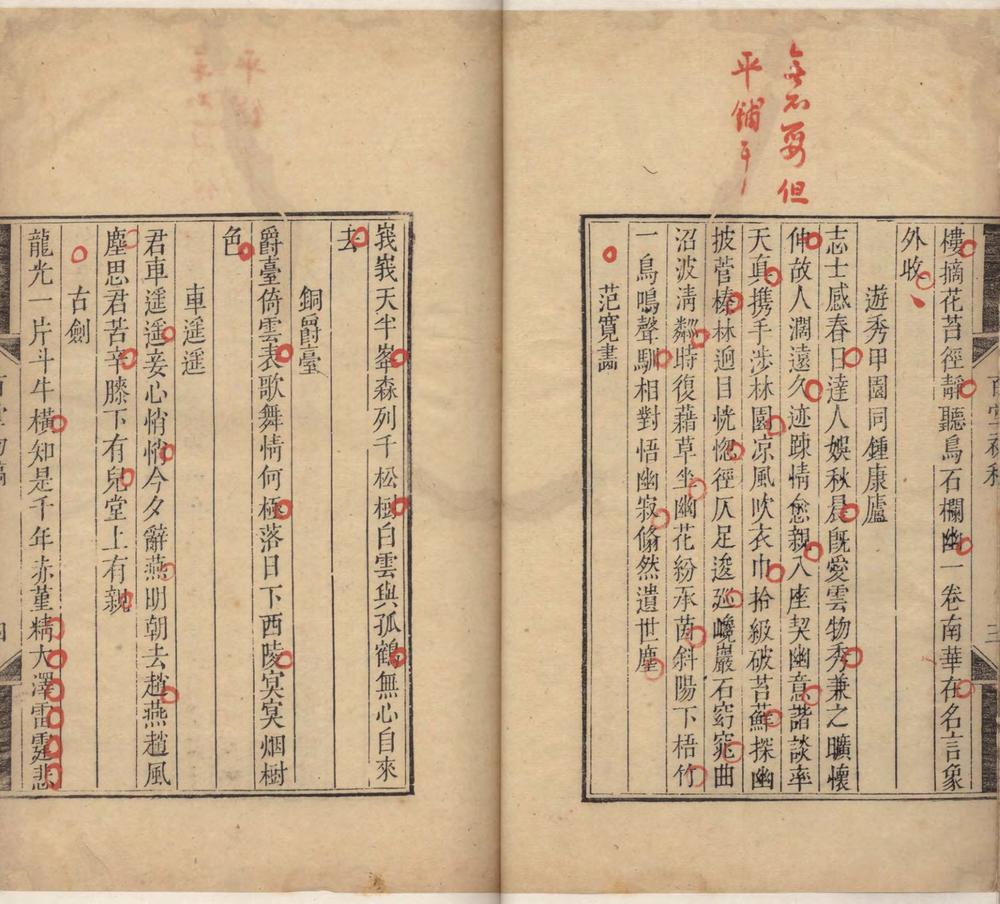 無不要但
平鋪耳
樓摘花苔徑靜聽鳥石欄幽一卷南華在名言象
外收
遊秀甲園同鍾康廬
志士感春日達人娛秋晨旣愛雲物秀兼之曠懷
伸故人濶遠久迹踈情愈親入座契幽意諧談率
天真携手涉林園凉風吹衣巾拾級破苔蘚探幽
披菅榛林迥目恍惚徑仄足逡廵巉巖石窈窕曲
沼波淸粼時復藉草坐幽花紛承茵斜陽下梧竹
一鳥鳴聲馴相對悟幽寂翛然遺世塵
范寛畵
峩峩天半峯森列千松樾白雲與孤鶴無心自來
去
銅爵臺
爵臺倚雲表歌舞情何極落日下西陵冥冥烟樹
色
車遥遥
君車遥遥妾心悄悄今夕辭燕明朝去趙燕趙風
塵思君苦辛膝下有兒堂上有親
古劍
龍光一片斗牛橫知是千年赤堇精大澤雷霆悲